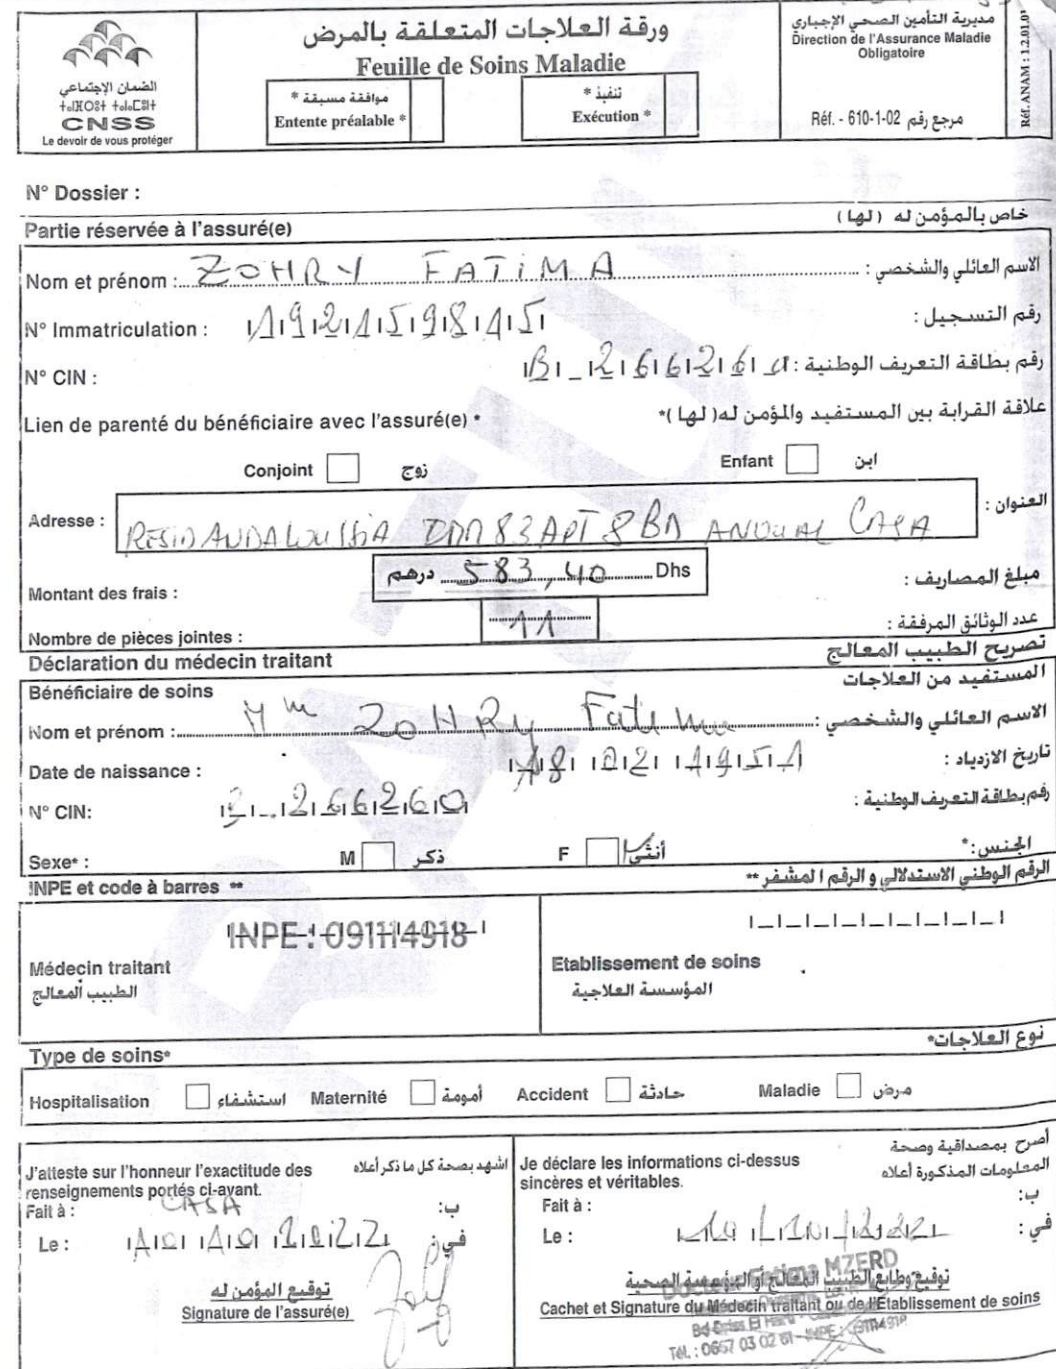 الضمان الإجتماعي
ⵜⴰⵏⴼⵔⵓⵜ ⵜⴰⵏⴰⵎⵓⵏⵜ
CNSS
Le devoir de vous protéger
ورقة العلاجات المتعلقة بالمرض
Feuille de Soins Maladie
موافقة مسبقة *
Entente préalable *
تنفيذ *
Exécution *
مديرية التأمين الصحي الإجباري
Direction de l'Assurance Maladie
Obligatoire
Réf. - 610-1-02 مرجع رقم
Réf. ANAM : 1.2.01.01
N° Dossier :
Partie réservée à l'assuré(e) خاص بالمؤمن له (لها)
Nom et prénom : ZOHRY FATIMA الاسم العائلي والشخصي :
N° Immatriculation : 192159815 رقم التسجيل :
N° CIN : B 266260 رقم بطاقة التعريف الوطنية :
Lien de parenté du bénéficiaire avec l'assuré(e) * علاقة القرابة بين المستفيد والمؤمن له (لها)*
Conjoint زوج Enfant ابن
Adresse : RESID ANDALOUSSIA 83 APT 8 BD ANOUAL CASA العنوان :
Montant des frais : درهم 583,40 Dhs مبلغ المصاريف :
Nombre de pièces jointes : 11 عدد الوثائق المرفقة :
Déclaration du médecin traitant تصريح الطبيب المعالج
Bénéficiaire de soins المستفيد من العلاجات
Nom et prénom : Mm ZOHRY Fatima الاسم العائلي والشخصي :
Date de naissance : 18 02 1951 تاريخ الازدياد :
N° CIN: B 266260 رقم بطاقة التعريف الوطنية :
Sexe* : M ذكر F أنثى الجنس :*
INPE et code à barres ** الرقم الوطني الاستدلالي و الرقم المشفر **
INPE : 091114918
Médecin traitant
الطبيب المعالج
Etablissement de soins
المؤسسة العلاجية
Type de soins* نوع العلاجات*
Hospitalisation استشفاء Maternité أمومة Accident حادثة Maladie مرض
J'atteste sur l'honneur l'exactitude des اشهد بصحة كل ما ذكر أعلاه
renseignements portés ci-avant.
Fait à : CASA ب:
Le : 10 10 2022 في :
توقيع المؤمن له
Signature de l'assuré(e)
Je déclare les informations ci-dessus أصرح بمصداقية وصحة
sincères et véritables. المعلومات المذكورة أعلاه
Fait à : ب:
Le : 10/10/2022 في :
توقيع وطابع الطبيب المعالج أو المؤسسة الصحية
Cachet et Signature du Médecin traitant ou de l'Etablissement de soins
Docteur Fatima MZERD
Tél. : 0667 03 02 61 - INPE : 091114918